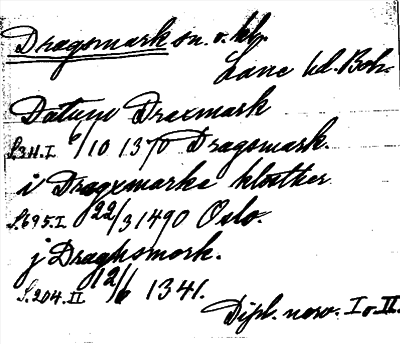 Dragsmark sn. v. kl.
Lane hd. Boh.
Datum Draxmark
S. 311. I 6/10 1370 Dragsmark.
i Dragxmarke kloster
S. 695. I. 22/3 1490 Oslo.
j Draghsmork.
S. 204. II 12/6 1341.
Dipl. norv. I o. II.